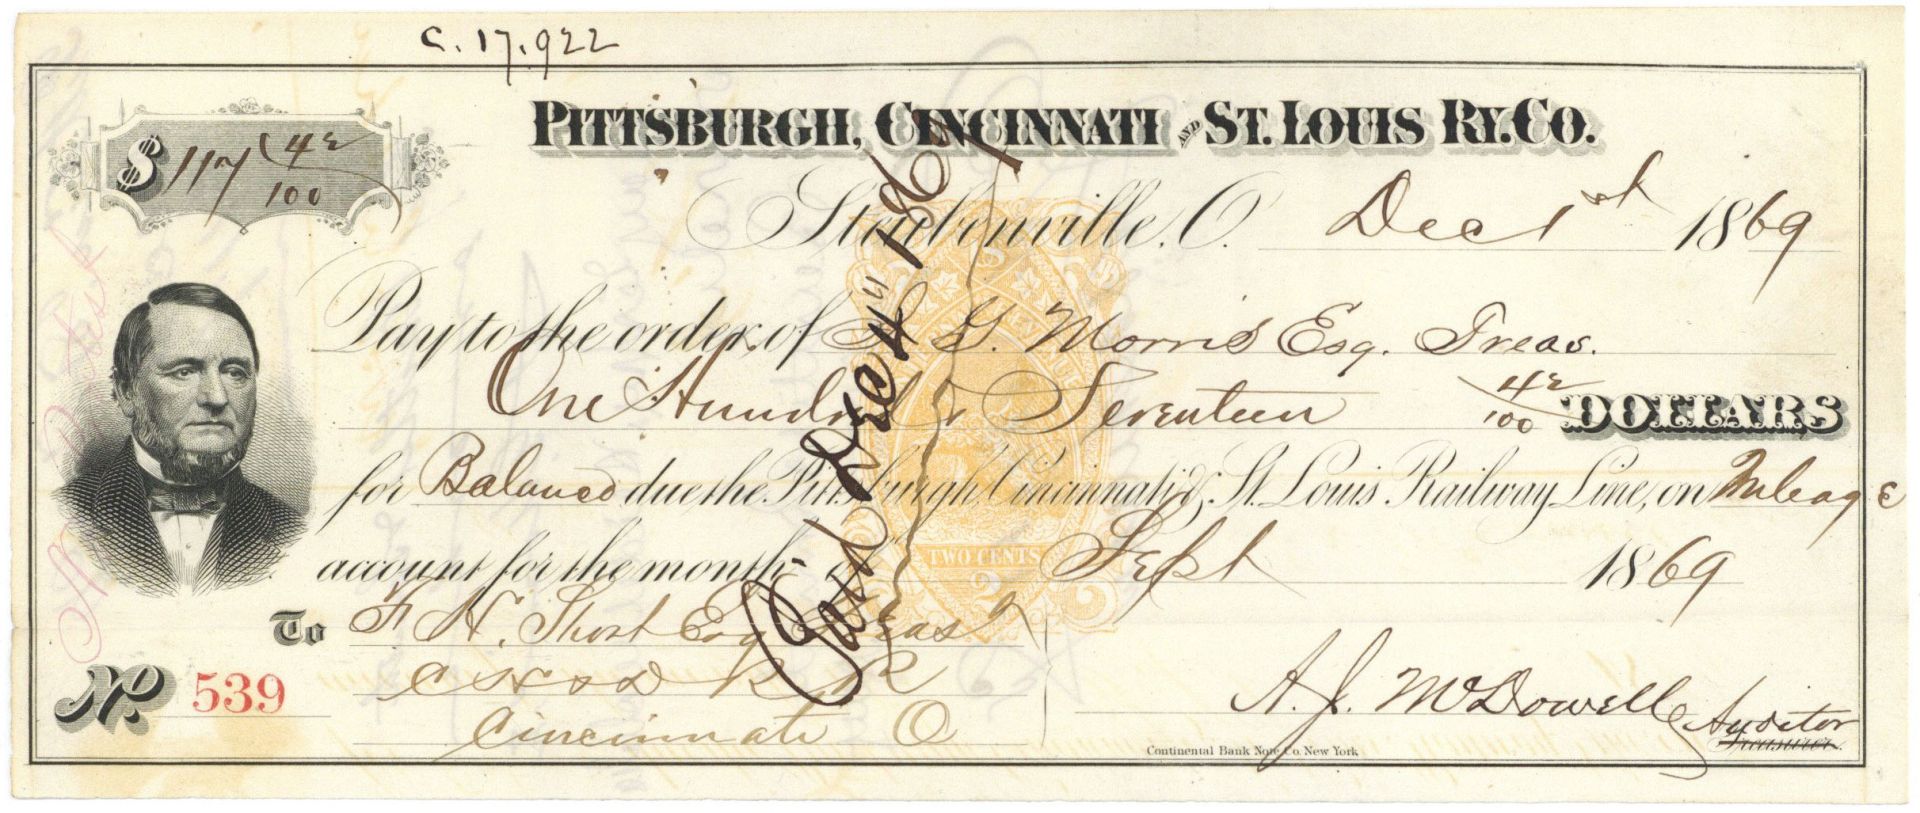 C. 17.922
$ 117 42/100
PITTSBURGH, CINCINNATI AND ST. LOUIS RY. CO.
Steubenville, O. Dec 1st 1869
Pay to the order of G. Morris Esq. Treas.
One Hundred & Seventeen 42/100 DOLLARS
for Balance due the Pittsburgh, Cincinnati & St. Louis Railway Line, on Mileage
account for the month of Sept 1869
To F. H. Short Esq Treas
C H & D R R
Cincinnati O
No. 539
A. J. McDowell Auditor
Treasurer.
Continental Bank Note Co. New York
TWO CENTS
2
Paid Dec 4 1869